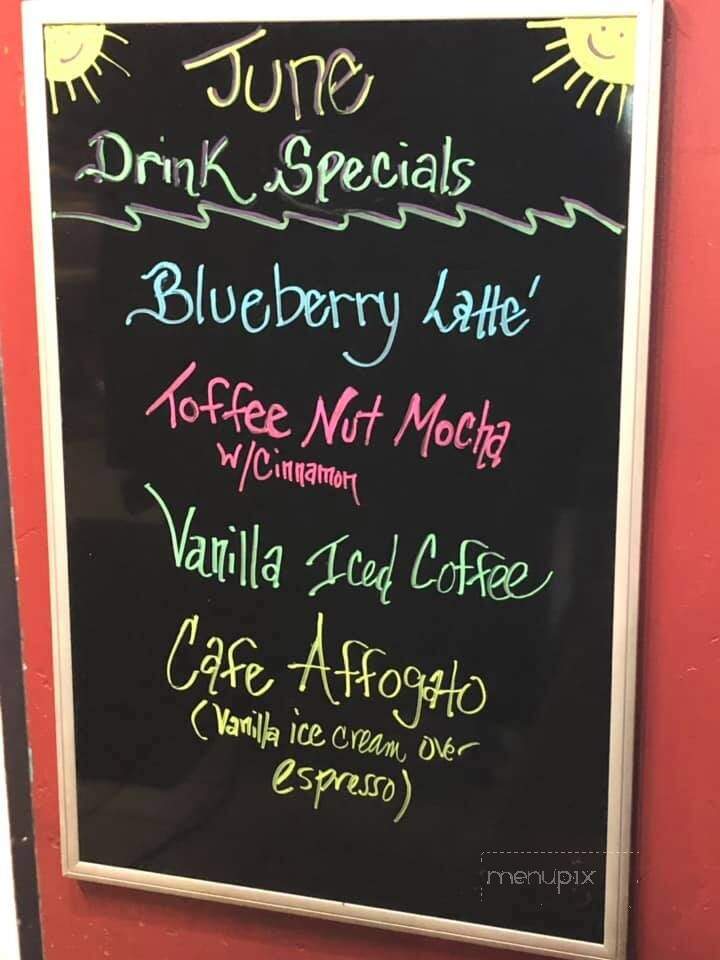 June
Drink Specials
Blueberry Latte'
Toffee Nut Mocha
w/Cinnamon
Vanilla Iced Coffee
Cafe Affogato
(Vanilla ice cream over
espresso)
menupix